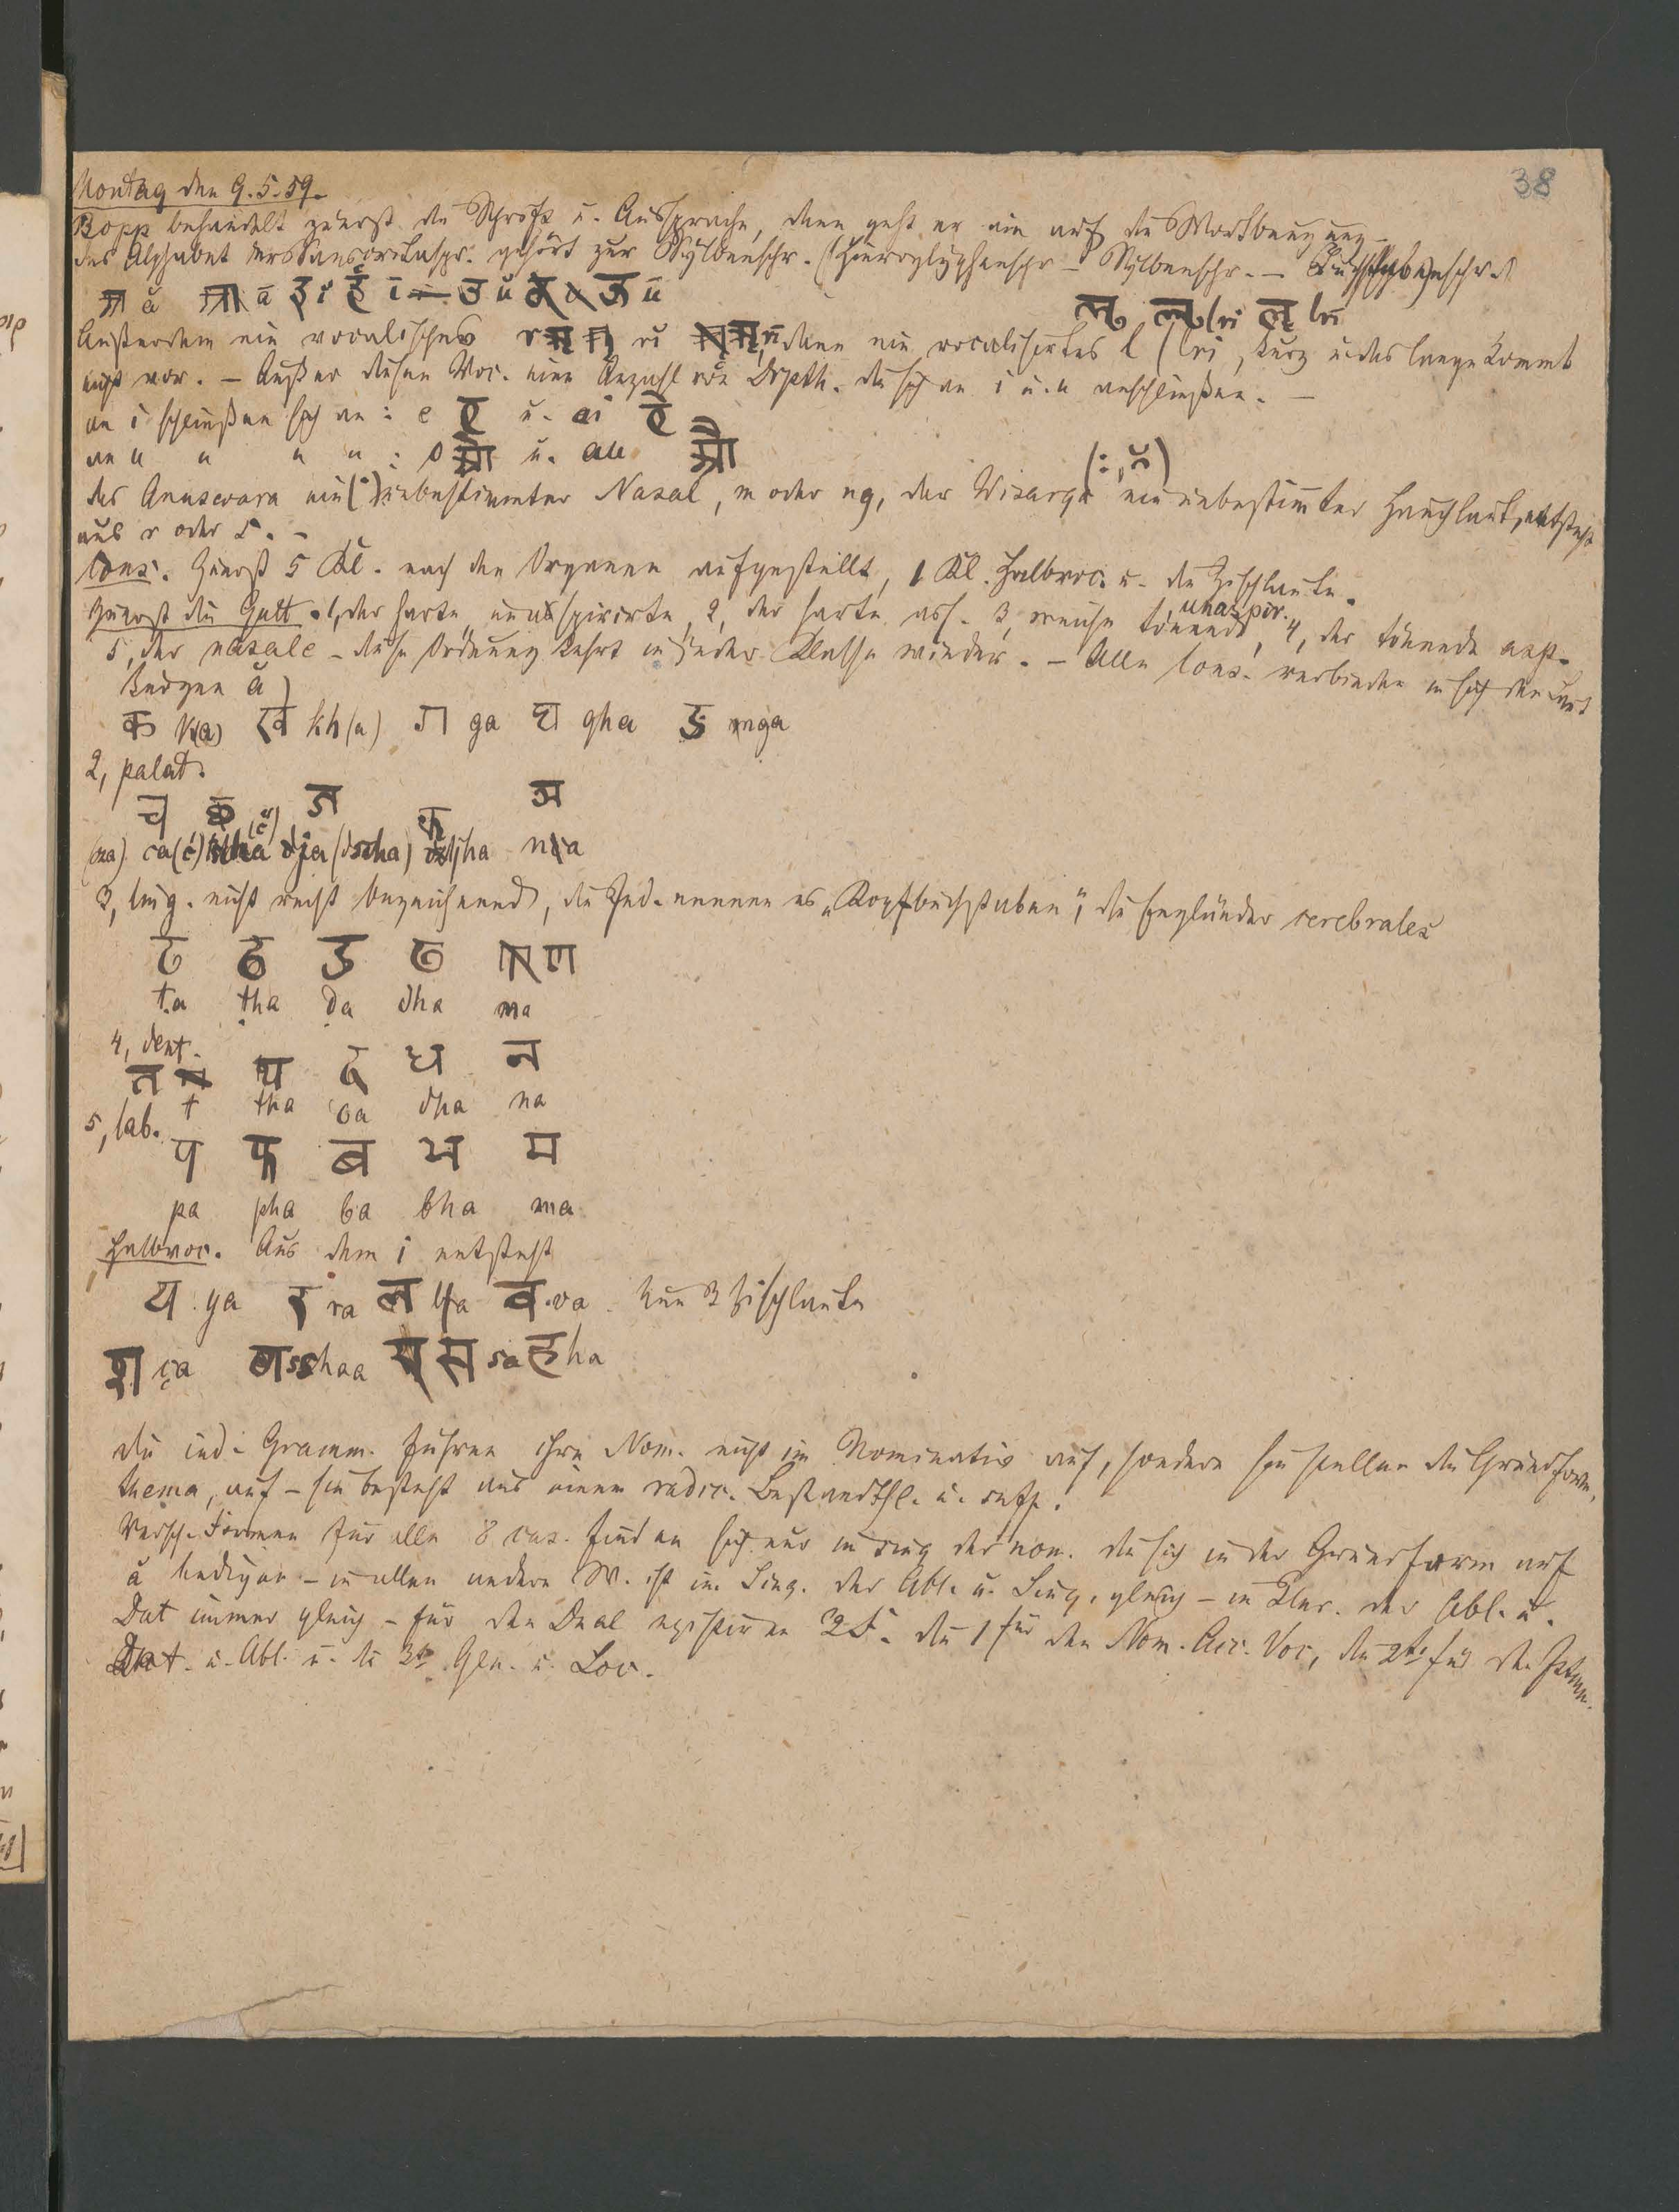 38
Montag den 9. 5. 59.
Bopp behandelt zuerst die Schrift u. Aussprache, dann geht er ein auf die Wortbeugung –
das Alphabet der Sanscritaspr. gehört zur Sylbenschr. (Hieroglyphenschr – Sylbenschr. – Buchstabenschr.)
अ ă आ ā इ i ई ī उ u ऊ ū
Außerdem ein vocalisches r ऋ ri ॠ rī, dann ein vocalisirtes l (lri, kurz u. das lange kommt ऌ lri ॡ lrī
nicht vor. – Außer diesen Voc. eine Anzahl von Dipth. die sich an i u. u anschließen. –
an i schließen sich an : e ए u. ai ऐ
an u " " " : o ओ u. au औ
das Anuswara ein (˙) unbestimmter Nasal, m oder ng, der Wisarga (:, ) ein unbestimmter Hauchlaut, entsteht
aus r oder s. –
Cons. Zuerst 5 Kl. nach den Organen aufgestellt, 1 Kl. Halbvoc. u. die Zischlaute.
Zuerst die Gutt. 1, der harte unaspirirte, 2, der harte asp. 3, weiche tönende, unaspir. 4, der tönende asp.
5, der nasale – diese Ordnung kehrt in jeder Klasse wieder. – Alle Cons. verbinden in sich den Laut
kurzen ă)
क k(a) ख kh(a) ग ga घ gha ङ nga
2, palat.
च छ ज झ ञ
ca (č) dja (dscha) djha nia
3, ling. nicht recht bezeichnend, die Ind. nennen es „Kopfbuchstaben", die Engländer cerebrales
ट ठ ड ढ ण
ṭa ṭha ḍa dha na
4, dent.
त थ द ध न
t tha da dha na
5, lab.
प फ ब भ म
pa pha ba bha ma
Halbvoc. Aus dem i entsteht
य ya र ra ल la व va. Nun 3 Zischlaute
श ça ष scha स sa ह ha
die ind. Gramm. führen ihre Nom. nicht im Nominativ auf, sondern sie stellen die Grundform,
thema, auf – sie besteht aus einem radic. Bestandthl. u. suff.
Versch. Formen für alle 8 cas. finden sich nur im sing der nom. die sich in der Grundform auf
a endigen – in allen andern W. ist im Sing. der Abl. u. gleich – im Plur. der Abl. u.
Dat immer gleich – für den Dual existiren 3 F. die 1 für den Nom. Acc. Voc, die 2te für den Instrum.
Dat. u. Abl. u. die 3te Gen. u. Loc.